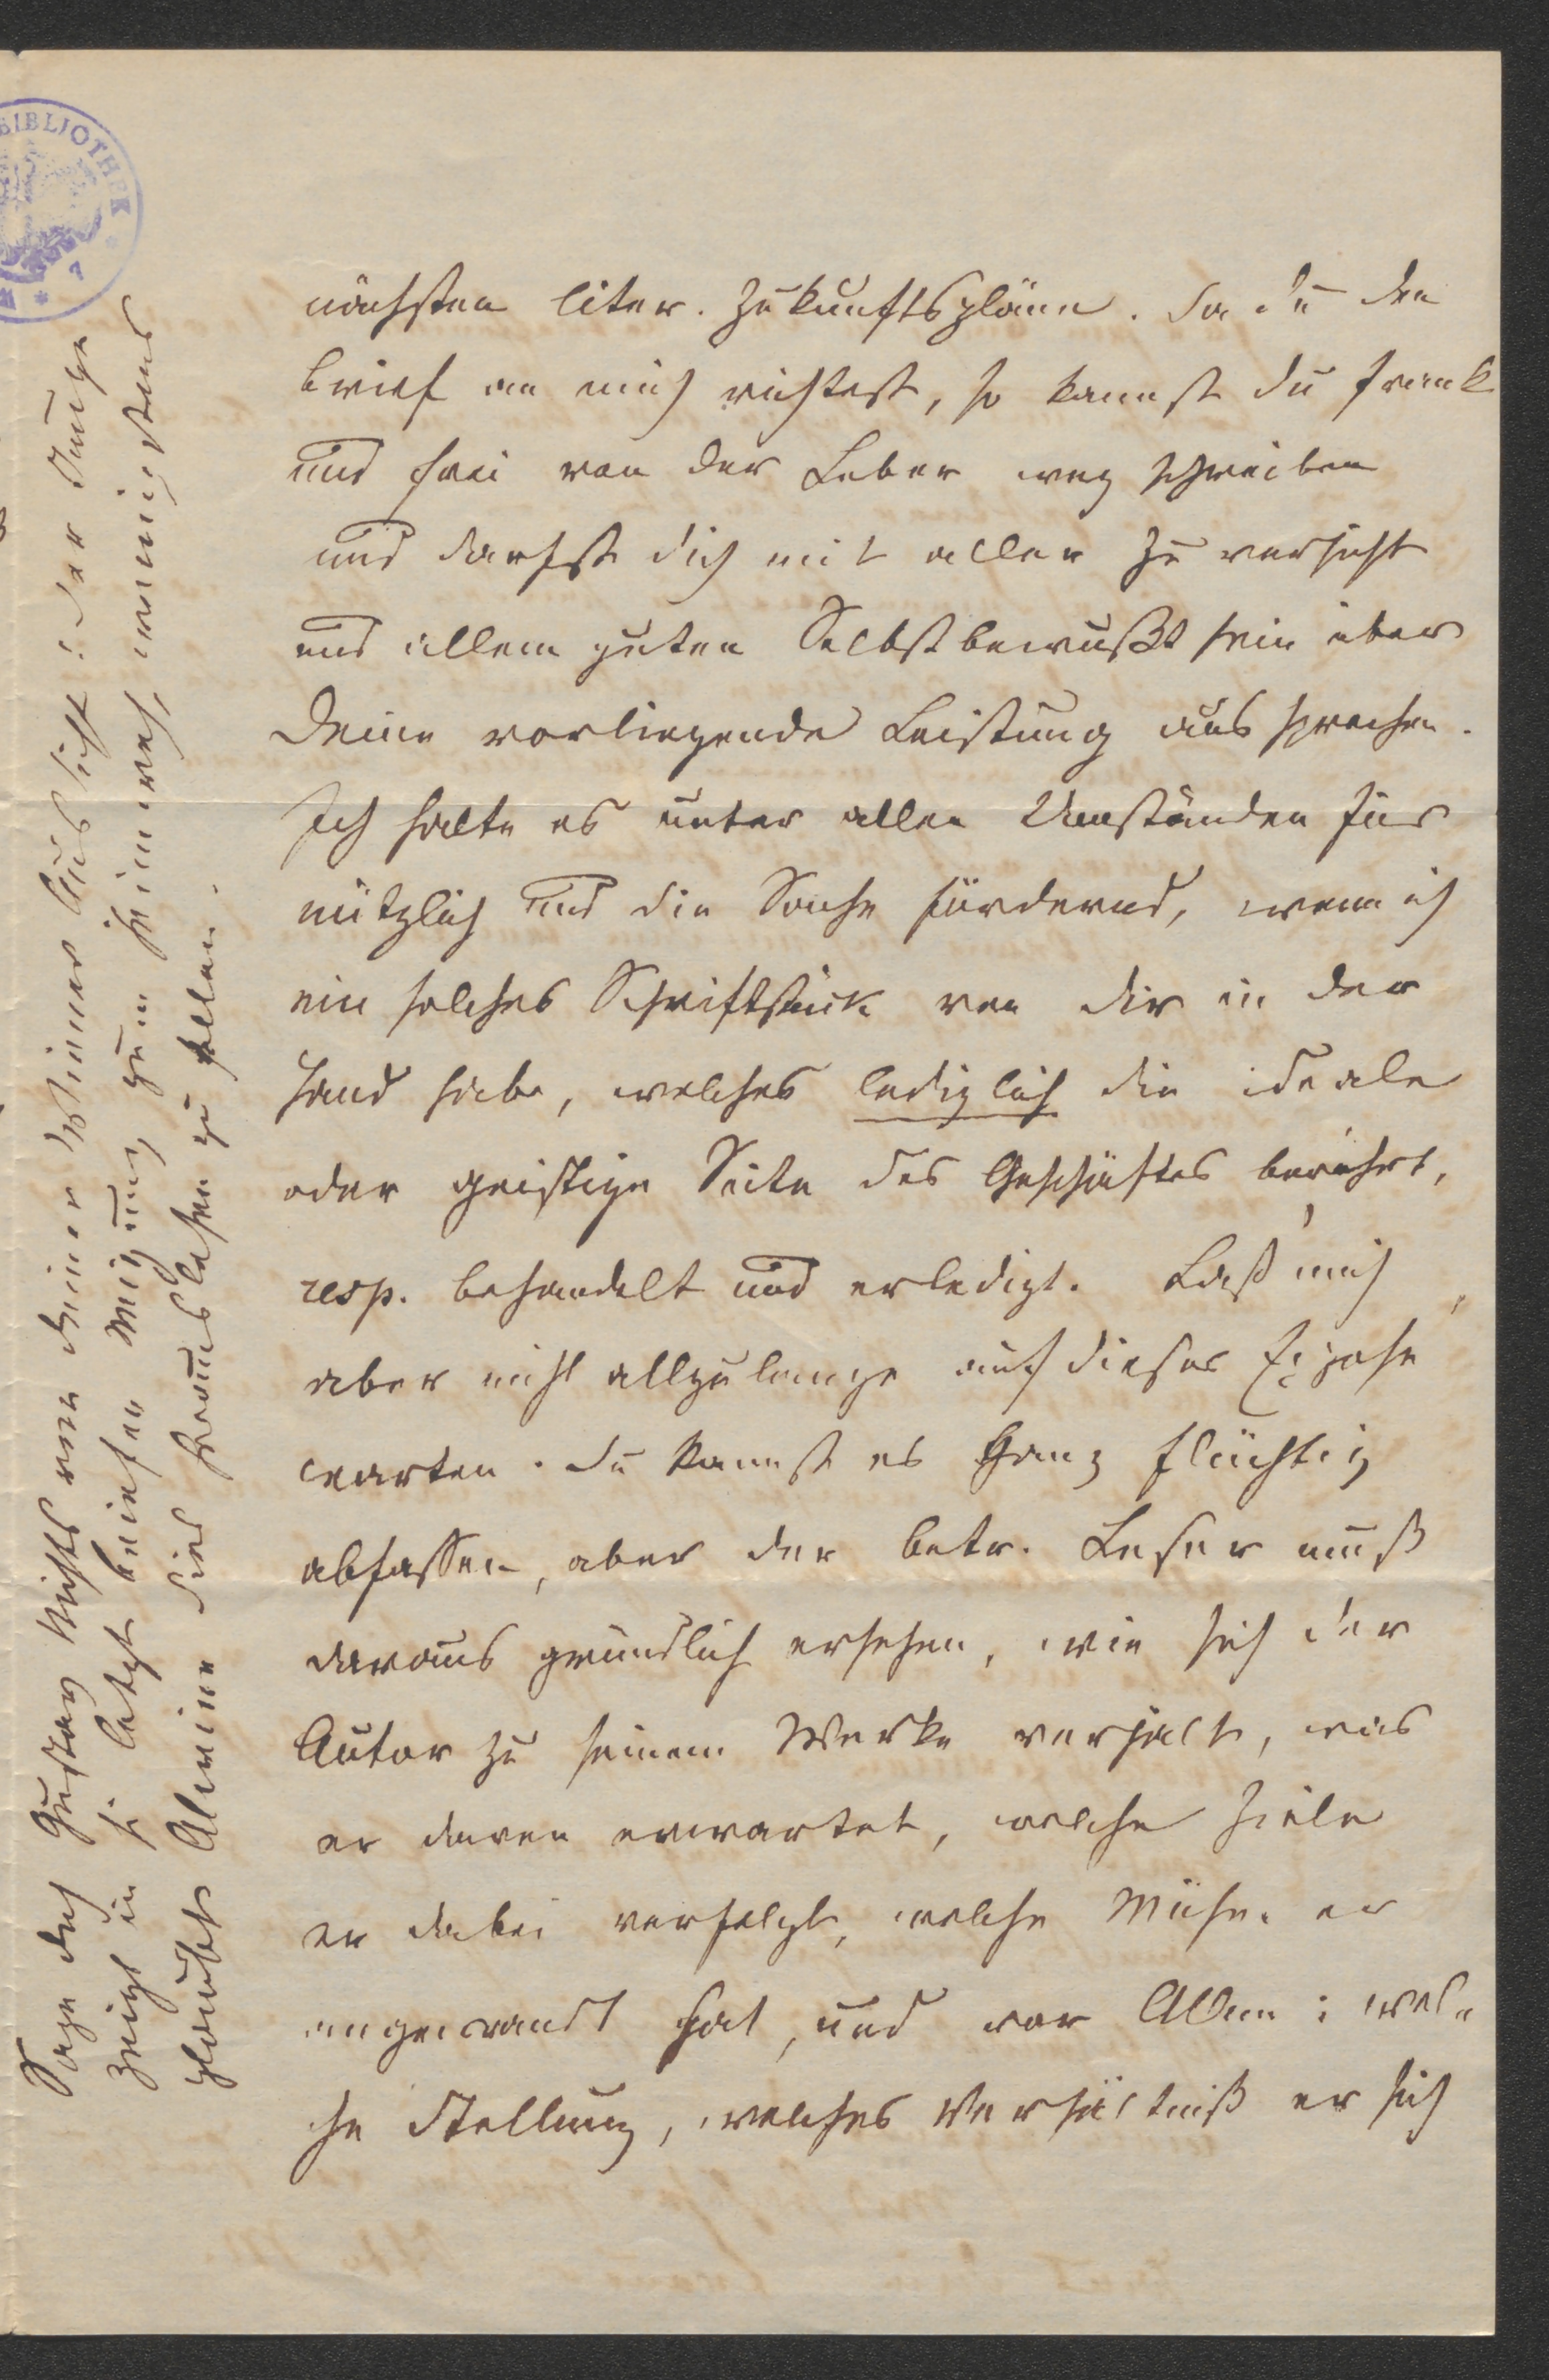 nächsten liter. Zukunftspläne. Da Du den
Brief an mich richtest, so kannst Du frank
und frei von der Leber weg schreiben
und darfst Dich mit aller Zuversicht
und allem guten Selbstbewußtsein über
Deine vorliegende Leistung aussprechen.
Ich halte es unter allen Umständen für
nützlich und die Sache fördernd, wenn ich
ein solches Schriftstück von Dir in der
Hand habe, welches lediglich die ideale
oder geistige Seite des Geschäftes berührt,
resp. behandelt und erledigt. Laß mich
aber nicht allzulange auf dieses Exposé
warten. Du kannst es ganz flüchtig
abfassen, aber der betr. Leser muß
daraus gründlich ersehen, wie sich der
Autor zu seinem Werke verhält, was
er davon erwartet, welche Ziele
er dabei verfolgt, welche Mühe er
angewandt hat, und vor Allem: wel-
che Stellung, welches Verhältniß er sich
Sage doch Gustav Nichts von Deiner Aussicht: der Junge
zeigt in letzten Briefen Neigung zum Heimweh, wenigstens
glaubt Alwine dies herauslesen zu sollen.
BIBLIOTHEK